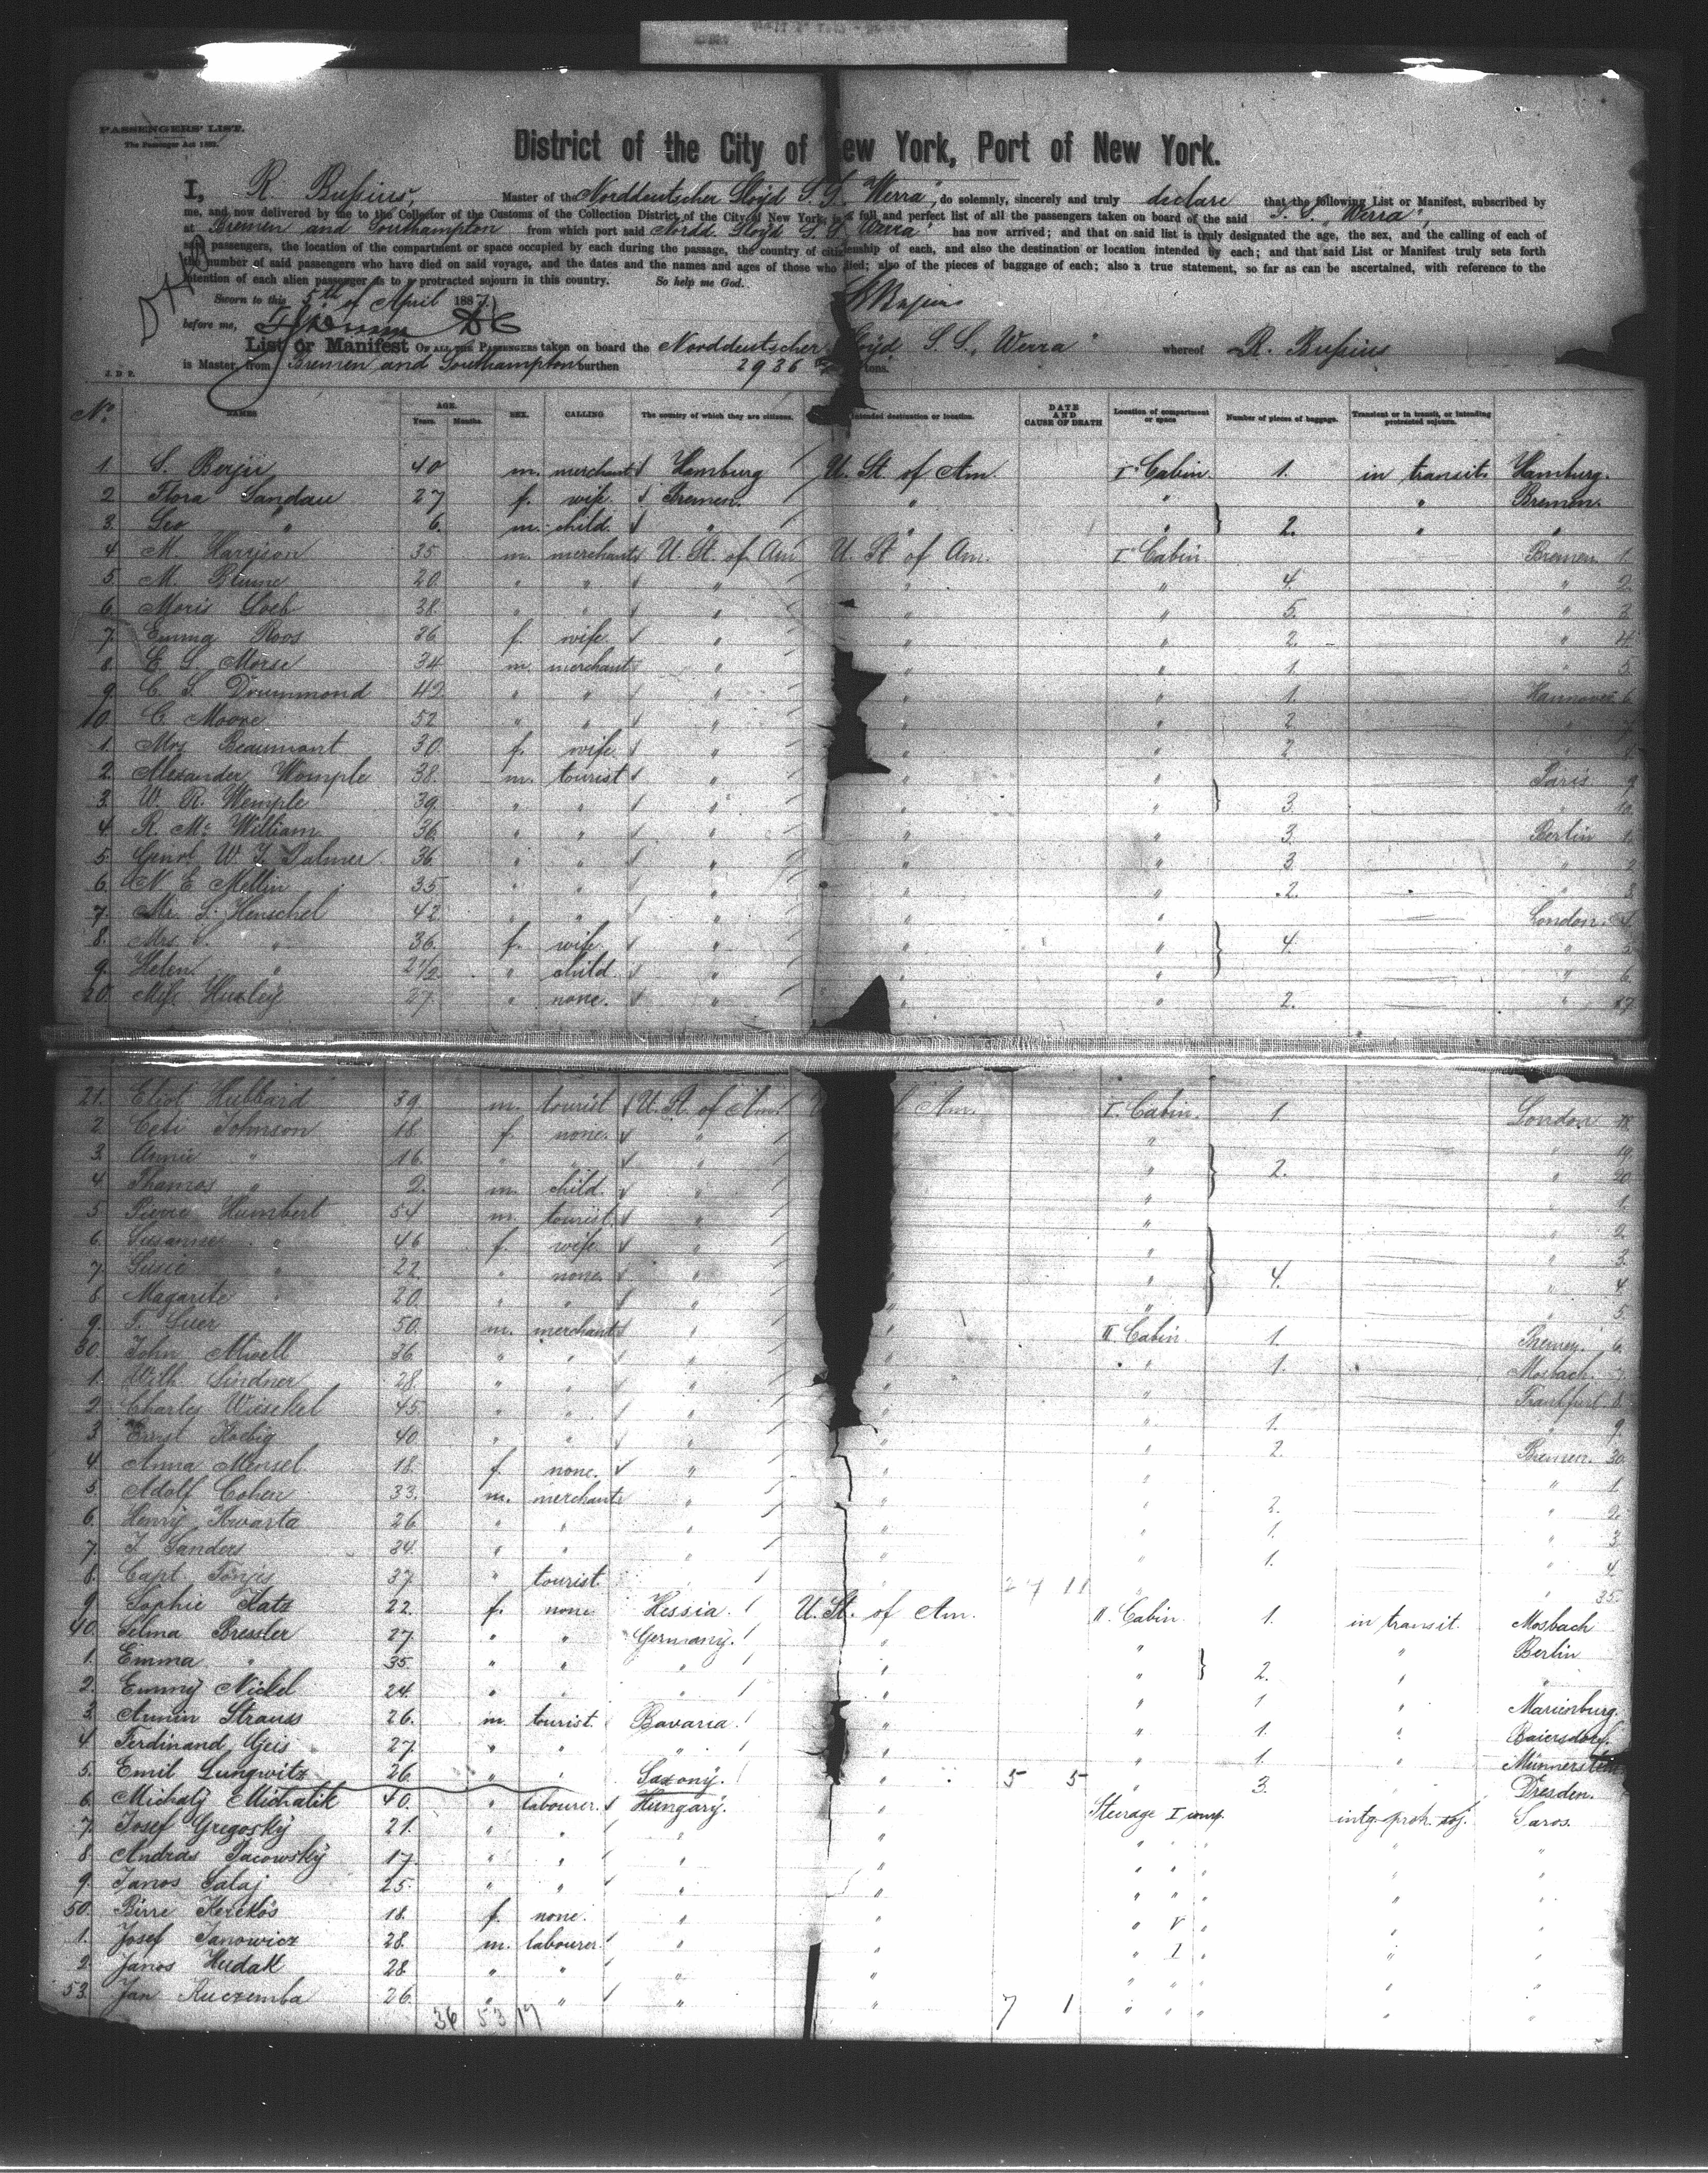 PASSENGERS' LIST.
The Passenger Act 1882.
District of the City of ew York, Port of New York.
I, R. Bussius, Master of the Norddeutscher Lloyd S. S. "Werra", do solemnly, sincerely and truly declare that the following List or Manifest, subscribed by
me, and now delivered by me to the Collector of the Customs of the Collection District of the City of New York, is a full and perfect list of all the passengers taken on board of the said S. S. "Werra",
at Bremen and Southampton from which port said Nordd. Lloyd S. S. "Werra" has now arrived; and that on said list is truly designated the age, the sex, and the calling of each of
said passengers, the location of the compartment or space occupied by each during the passage, the country of citizenship of each, and also the destination or location intended by each; and that said List or Manifest truly sets forth
the number of said passengers who have died on said voyage, and the dates and the names and ages of those who died; also of the pieces of baggage of each; also a true statement, so far as can be ascertained, with reference to the
intention of each alien passenger as to a protracted sojourn in this country. So help me God.
Sworn to this 5th of April 1887
before me,
List or Manifest OF ALL THE PASSENGERS taken on board the Norddeutscher Lloyd S. S. "Werra" whereof R. Bussius
is Master, from Bremen and Southampton burthen 2936 tons.
J. D. P.
No. NAMES AGE. Years. Months. SEX. CALLING The country of which they are citizens. Intended destination or location. DATE AND CAUSE OF DEATH Location of compartment or space Number of pieces of baggage. Transient or in transit, or intending protracted sojourn.
1. S. 40 m. merchant Hamburg U. St. of Am. I Cabin. 1. in transit. Hamburg.
2. Flora Landau 27 f. wife. Bremen. " " " Bremen.
3. Leo " 6. m. child. " " " 2. " "
4. M. Harrison 35 m. merchant U. St. of Am U. St. of Am. I Cabin. Bremen. 1.
5. M. Blume 20. " " " " " 4. " 2.
6. Moris Loeb 38. " " " " " 5. " 3.
7. Emma Roos 36 f. wife " " " 2. " 4.
8. E. S. Morse 34 m. merchant " " " 1. " 5.
9. C. S. Drummond 42 " " " " " 1. Hannover 6.
10. C. Moore 52 " " " " " 2. 7.
1. Mrs. Beaumont 30. f. wife " " " 2
2. Alexander Womple 38. m. tourist " " " Paris 9
3. W. R. Wemple 39. " " " " " 3. " 10.
4. R. Mc William 36. " " " " " 3. Berlin 1.
5. Genrl. W. J. Palmer. 36. " " " " " 3. " 2
6. N. E. Mellin 35 " " " " " 2. " 3
7. Mr. S. Henschel 42. " " " " " London. 4.
8. Mrs. " 36. f. wife. " " " 4. " 5
9. Helen " 2 1/2 " child. " " " " 6.
20. Miss Huxley 27. " none. " " " 2. " 17.
21. Eliot Hubbard 39. m. tourist U. St. of Am. Am. I Cabin. 1. London 18
2 Johnson 18. f. none. " " " 19.
3. Annie " 16. " " " 2. " 20
4 Thomas " 2. m. child. " " " 1.
5. Pierre Humbert 54 m. tourist. " " " 2.
6. Susanne " 46 f. wife " " " 3.
7. Susie " 22. " none. " " 4. " 4.
8. Magarite " 20. " " " " " 5.
9. 50. m. merchant " " II Cabin. 1. Bremen. 6.
30. John 36. " " " " " 1. Mosbach. 7.
1. Wilh. Lindner 28. " " " " " Frankfurt. 8.
2. Charles 45. " " " " " 1. " 9.
3 Ernst 40. " " " " " 2. Bremen. 30
4. Anna Mensel 18. f. none. " " " " 1
5. Adolf Cohen 33. m. merchant " " " 2. " 2.
6. Henry Kwarta 26 " " " " " 1. " 3.
7. J. Sanders 34. " " " " " 1. " 4.
8. Capt. 37. " tourist. 27 11 " 35.
9. Sophie Katz 22. f. none Hessia. U. St. of Am. II. Cabin 1. in transit. Mosbach
40. Selma Bressler 27. " " Germany. " " " Berlin
1. Emma " 35. " " " " " 2. " "
2. Emmy Nickel 24. " " " " " 1 " Marienburg.
3. Armin Strauss 26. m. tourist. Bavaria. " " 1. " Baiersdorf.
4. Ferdinand Geis 27. " " " " " 1. "
5. Emil Lungwitz 26. " " Saxony. " 5 5 " 3. Dresden.
6. Michaly Michalik 40. " labourer. Hungary. " Steerage I comp. intg. prot. soj. Saros.
7. Josef Gregosky 21. " " " " " " " " "
8. Andras Pacowsky 17. " " " " " " " " "
9. Janos Galaj 25. " " " " " " " " "
50. Birre Kerekos 18. f. none. " " " V " " "
1. Josef Janowicz 28. m. labourer. " " " I " " "
2. Janos Hudak 28 " " " " " " " " "
53. Jan Kuczemba 26. " " " " 7 1 " " " " "
36 53 17